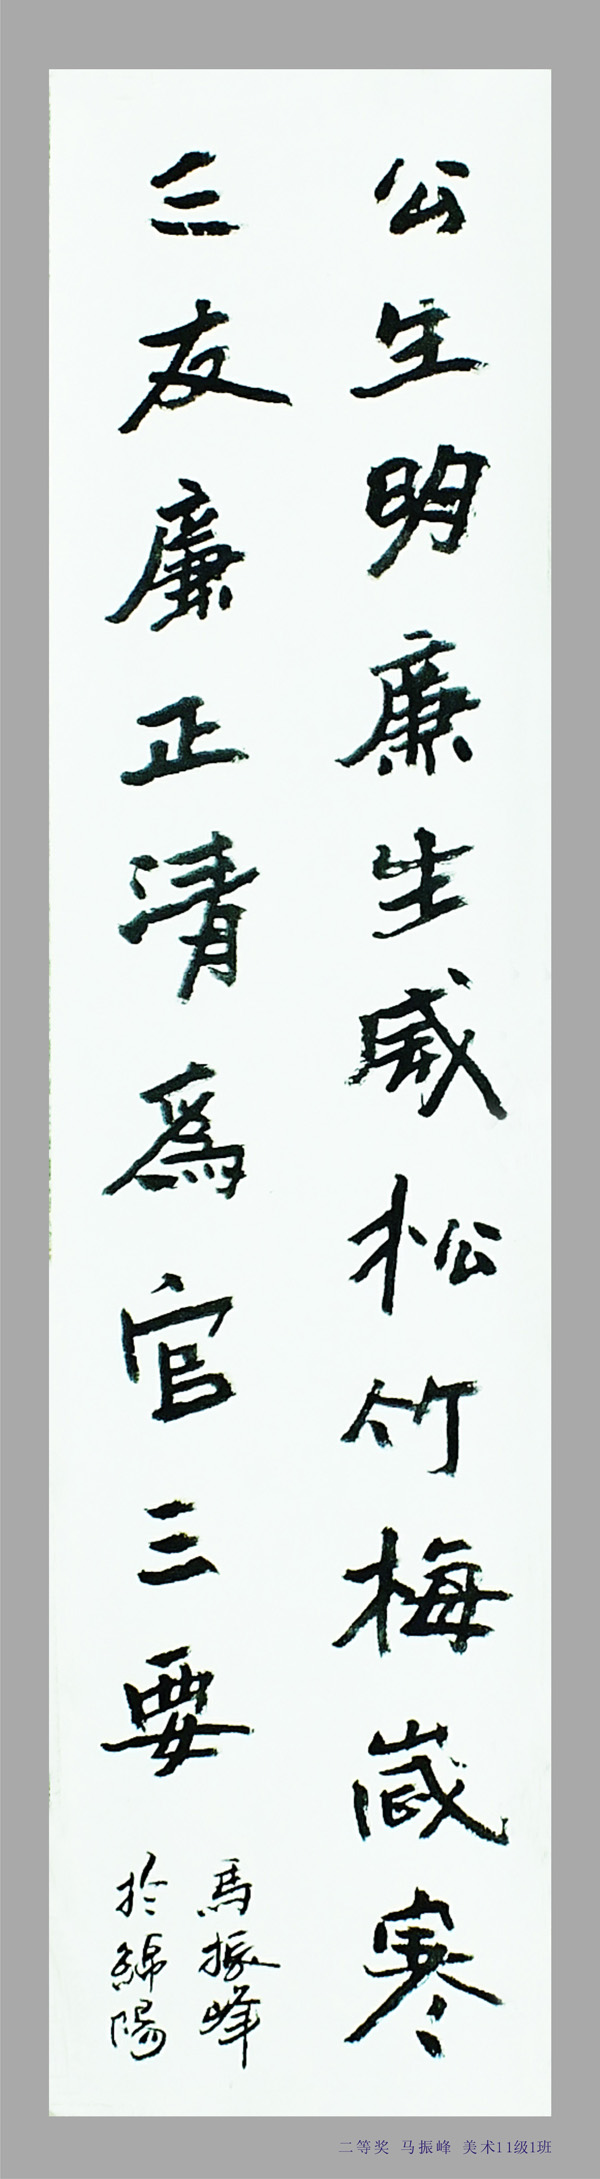 公生明廉生威松竹梅歲寒
三友廉正清爲官三要
馬振峰
於綿陽
二等奖 马振峰 美术11级1班